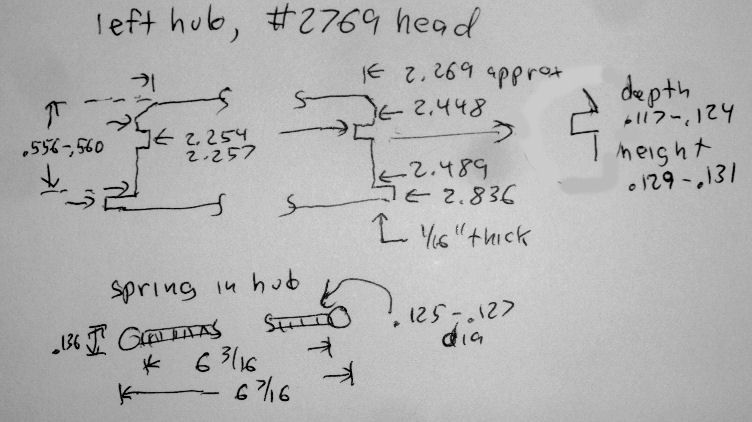 left hub, #2769 head
2.269 approx
2.448
depth
.117-.124
height
.129-.131
.556-.560
2.254
2.257
2.489
2.836
1/16" thick
spring in hub
.136
.125-.127
dia
6 3/16
6 7/16